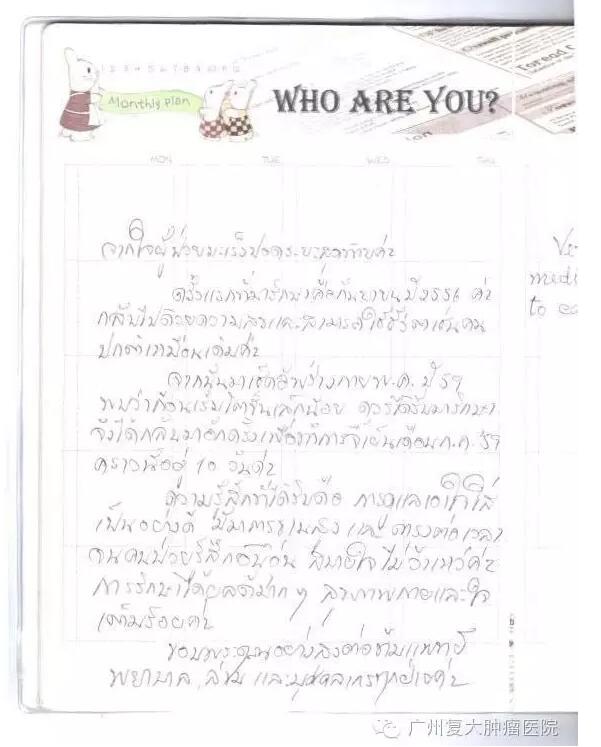 1 2 3 4 5 6 7 8 9 10 11 12
Monthly plan
WHO ARE YOU?
MON TUE WED THU
จากใจผู้ป่วยมะเร็งปอดระยะสุดท้ายค่ะ
ครั้งแรกที่มารักษาคือกันยายนปี 2556 ค่ะ
กลับไปด้วยความสุขและสามารถใช้ชีวิตเช่นคน
ปกติเหมือนเดิมค่ะ
จากนั้นมาเช็คร่างกาย พ.ค. ปี 59
พบว่าก้อนเริ่มโตขึ้นเล็กน้อย ควรได้รับการรักษา
จึงได้กลับมาอีกครั้งเพื่อทำการจี้เย็นเดือน ก.ค. 59
คราวนี้อยู่ 10 วันค่ะ
ความรู้สึกที่ได้รับคือ การดูแลเอาใจใส่
เป็นอย่างดี มีมาตรฐานสูง และตรงต่อเวลา
จนคนป่วยรู้สึกอบอุ่น สบายใจ ไม่ว้าเหว่ค่ะ
การรักษาได้ผลดีมาก ๆ สุขภาพกายและใจ
เต็มร้อยค่ะ
ขอบพระคุณอย่างสูงต่อทีมแพทย์
พยาบาล, ล่าม และบุคคลากรทุกฝ่ายค่ะ
medi
to ea
广州复大肿瘤医院